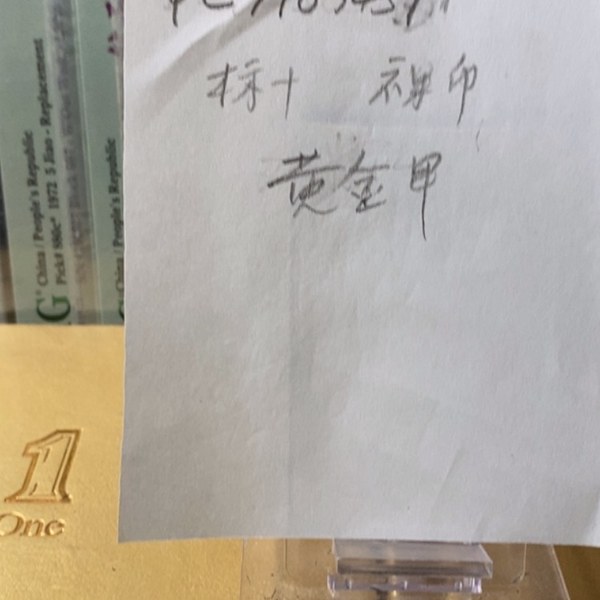 标十 裸印
黄金甲
China / People's Republic
Pick# 886c* 1972 5 Jiao - Replacement
China / People's Republic
1
One